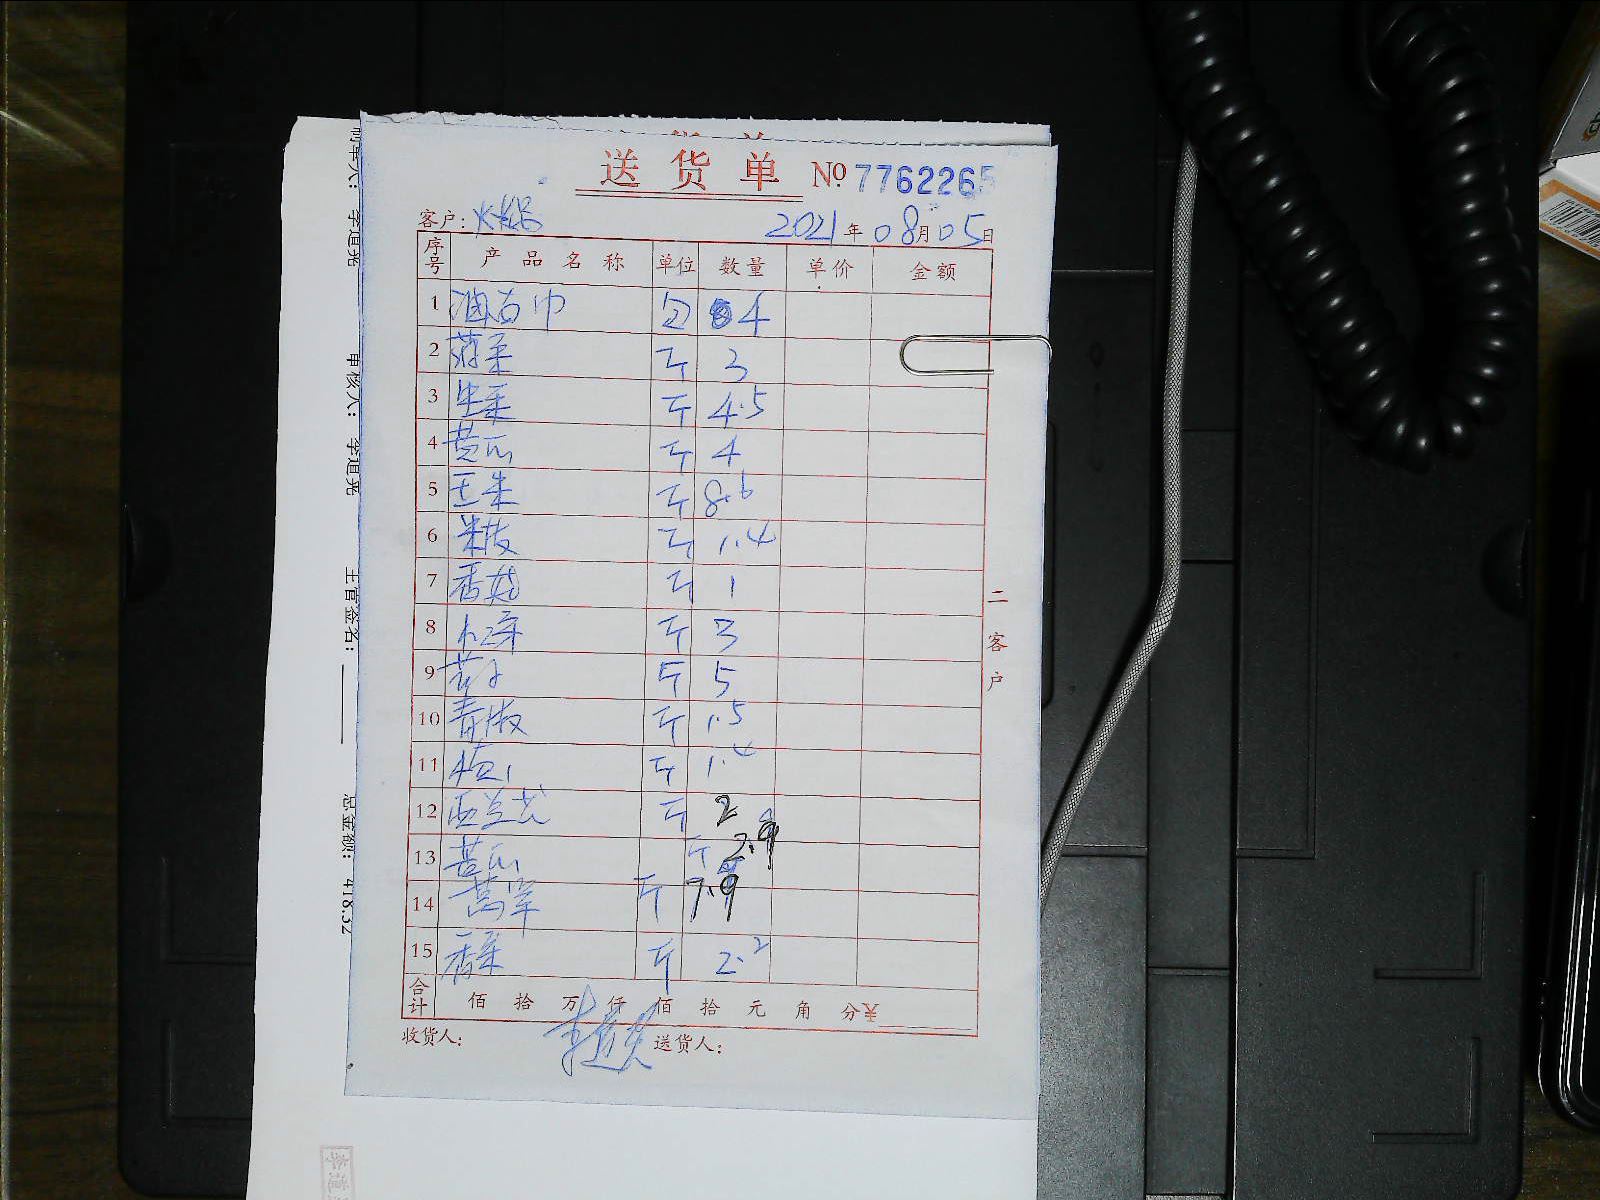 送货单 № 7762265
客户: 火锅 2021年08月05日
序号 产品名称 单位 数量 单价 金额
1 包 4
2 斤 3
3 生菜 斤 4.5
4 黄瓜 斤 4
5 玉米 斤 8.6
6 米椒 斤 1.4
7 香菇 斤 1
8 斤 3
9 斤 5
10 青椒 斤 1.5
11 斤 1.4
12 西兰花 斤 2
13 苦瓜 斤 2.9
14 莴笋 斤 7.9
15 香菜 斤 2.2
合计 佰 拾 万 仟 佰 拾 元 角 分 ¥
收货人: 李道光 送货人:
二客户
制单人: 李道光
审核人: 李道光
主管签名:
总金额: 418.32